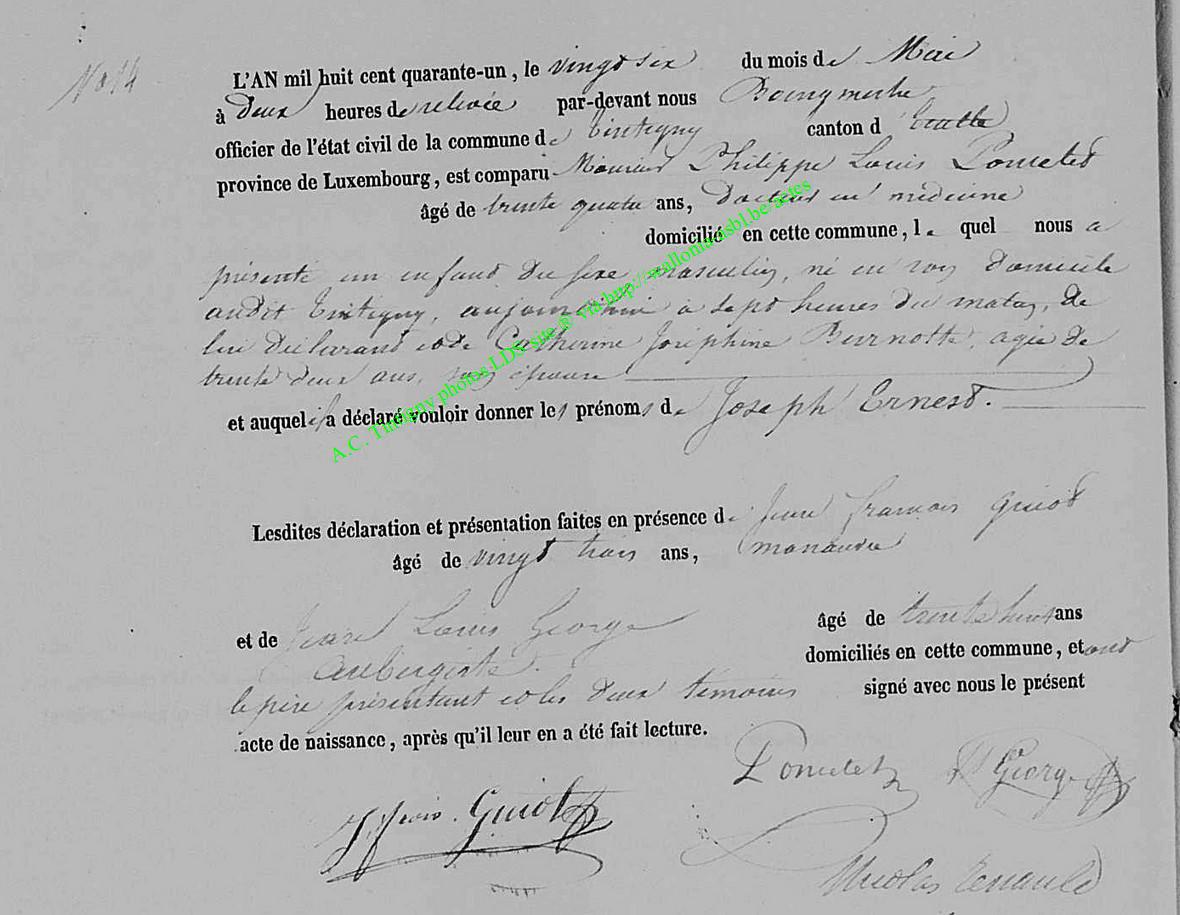 No 14
L'AN mil huit cent quarante-un, le vingt six du mois de Mai
à deux heures de relevée par-devant nous Bourgmestre
officier de l'état civil de la commune de Tintigny canton d'Etalle
province de Luxembourg, est comparu Monsieur Philippe Louis
âgé de trente quatre ans, docteur en médecine
domicilié en cette commune, le quel nous a
présenté un enfant du sexe masculin, né en son domicile
audit Tintigny, aujourd'hui à sept heures du matin, de
lui déclarant et de Catherine Joséphine Burnotte, agée de
trente deux ans, son épouse
et auquel il a déclaré vouloir donner les prénoms de Joseph Ernest.
Lesdites déclaration et présentation faites en présence de Jean françois Guiot
âgé de vingt trois ans, manœuvre
et de Jean Louis George âgé de trente huit ans
aubergiste. domiciliés en cette commune, et ont
le père présentant et les deux témoins signé avec nous le présent
acte de naissance, après qu'il leur en a été fait lecture.
George
Guiot
Nicolas
A.C. Tintigny photos LDS site ® via http://wallonia.asbl.be/actes